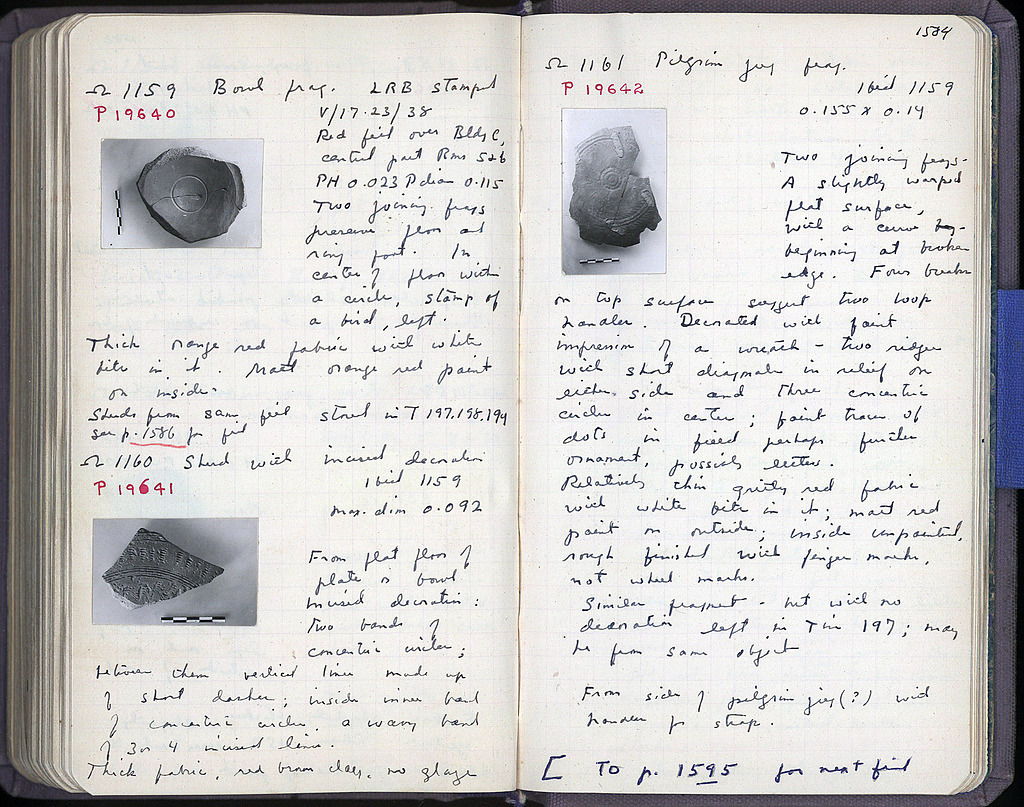 Ω 1159 Bowl frag. LRB stamped
P 19640
V/17.23/38
Red fill over Bldg C,
central part Rms 5+6
PH 0.023 P diam 0.115
Two joining frags
preserve floor and
ring foot. In
center of floor within
a circle, stamp of
a bird, left.
Thick orange red fabric with white
bits in it. Matt orange red paint
on inside.
Sherds from same fill stored in T 197, 198, 194
see p. 1586 for fill
Ω 1160 Sherd with incised decoration
P 19641
ibid 1159
max. dim 0.092
From flat floor of
plate or bowl
Incised decoration:
Two bands of
concentric circles;
between them vertical lines made up
of short dashes; inside inner band
of concentric circles a wavy band
of 3 or 4 incised lines.
Thick fabric, red brown clay, no glaze
1584
Ω 1161 Pilgrim jug frag.
P 19642
ibid 1159
0.155 x 0.14
Two joining frags.
A slightly warped
flat surface,
with a curve
beginning at broken
edge. Four breaks
on top surface suggest two loop
handles. Decorated with faint
impression of a wreath - two ridges
with short diagonals in relief on
either side and three concentric
circles in center; faint traces of
dots in field perhaps further
ornament, possibly letters.
Relatively thin gritty red fabric
with white bits in it; matt red
paint on outside; inside unpainted,
rough finished with finger marks,
not wheel marks.
Similar fragment - but with no
decoration left in Tin 197; may
be from same object
From side of pilgrim jug (?) with
handles for strap.
[ To p. 1595 for next fill